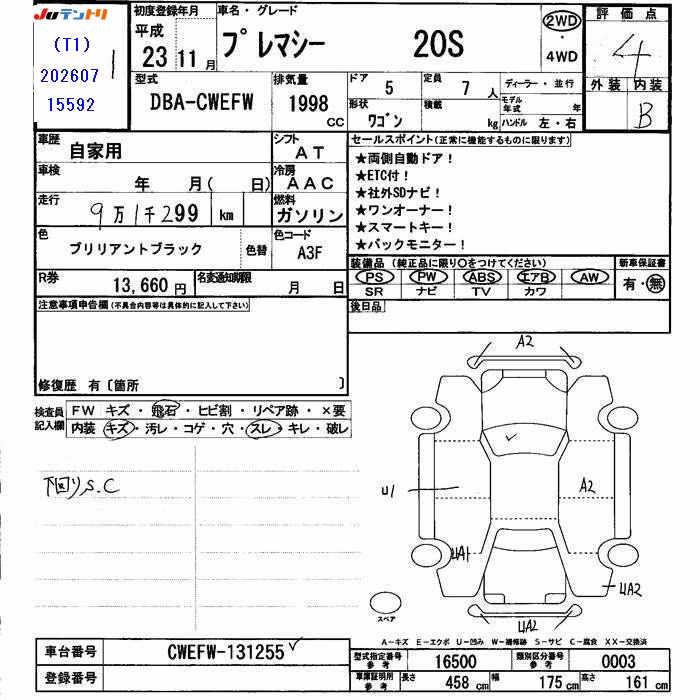 JUテントリ
(T1)
202607
15592
1
初度登録年月
平成
23 11月
車名・グレード
プレマシー 20S
2WD
・
4WD
評価点
4
外装 内装
B
型式
DBA-CWEFW
排気量
1998
CC
ドア
5
定員
7 人
形状
ワゴン
積載
kg
ディーラー・並行
モデル年式 年
ハンドル 左・右
車歴
自家用
シフト
AT
車検
年 月( 日)
冷房
AAC
走行
9万1千299 km
燃料
ガソリン
色
ブリリアントブラック
色替
色コード
A3F
R券
13,660 円
名変通知期限
月 日
セールスポイント(正常に機能するものに限ります)
★両側自動ドア!
★ETC付!
★社外SDナビ!
★ワンオーナー!
★スマートキー!
★バックモニター!
装備品(純正品に限り○をつけてください)
新車保証書
PS PW ABS エアB AW
有・無
SR ナビ TV カワ
後日品
注意事項申告欄(不具合内容等は具体的に記入して下さい)
修復歴 有〔箇所 〕
検査員記入欄
FW キズ・飛石・ヒビ割・リペア跡・×要
内装 キズ・汚レ・コゲ・穴・スレ・キレ・破レ
下回りS.C
A2
U1
A2
UA1
UA2
UA2
スペア
A−キズ E−エクボ U−凹み W−補修跡 S−サビ C−腐食 XX−交換済
車台番号
CWEFW-131255
登録番号
型式指定番号
参考
16500
類別区分番号
参考
0003
車庫証明用
参考
長さ
458 cm
幅
175 cm
高さ
161 cm